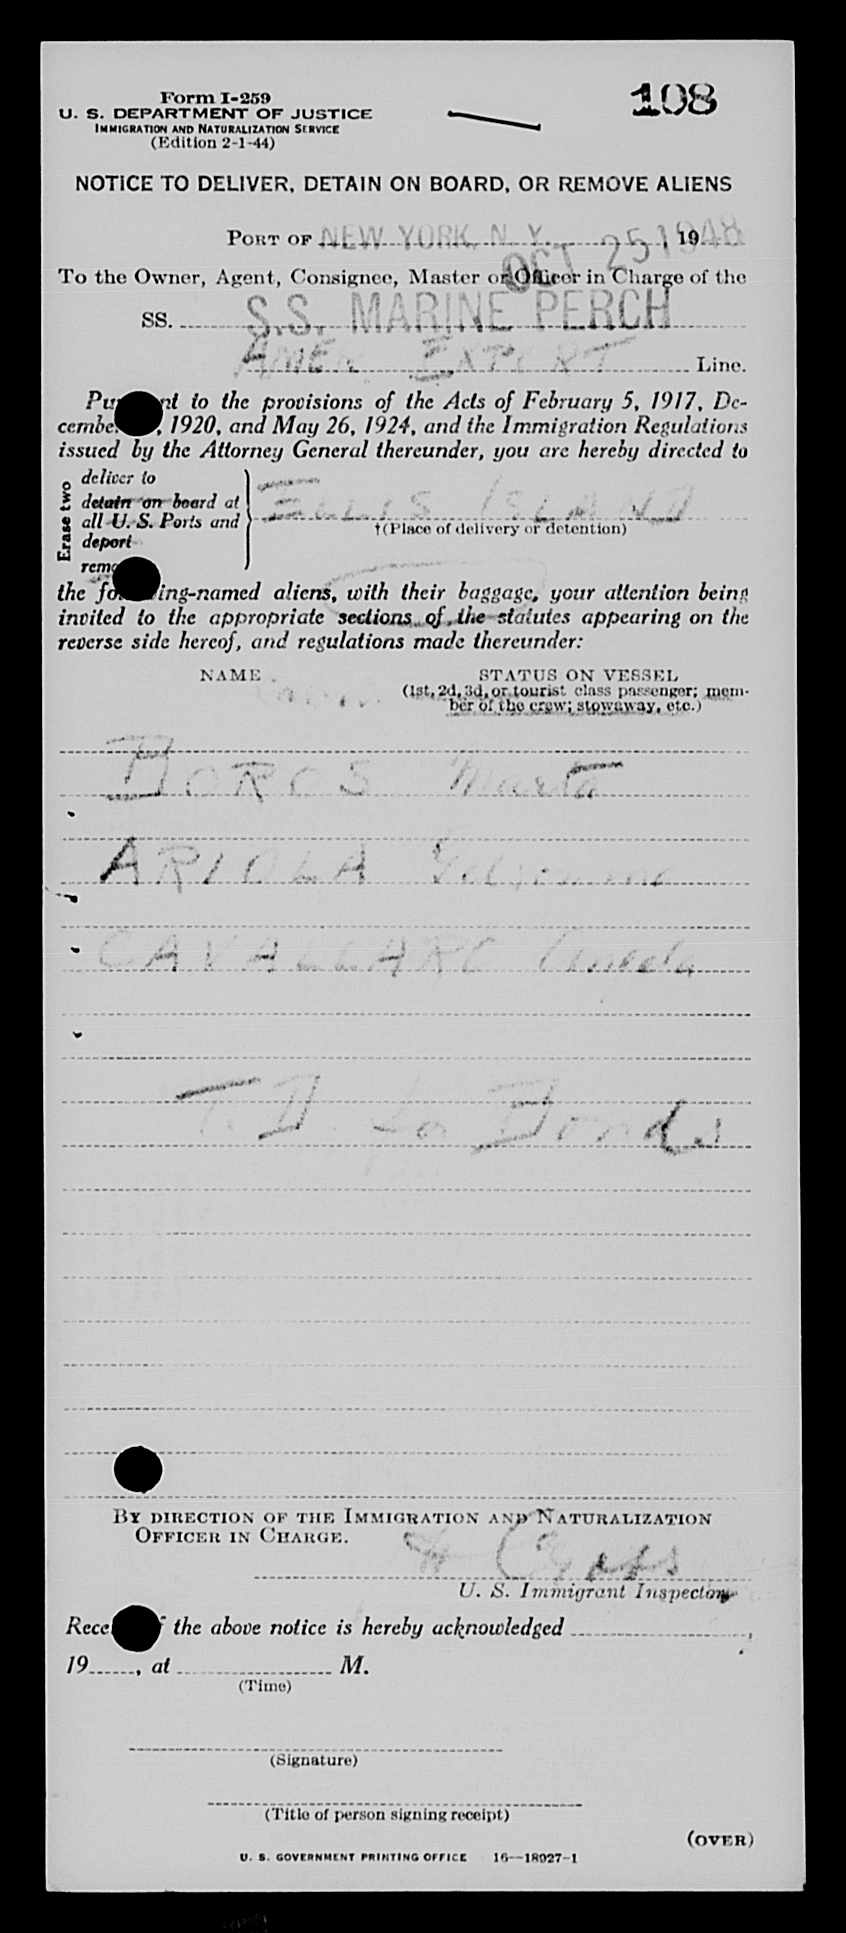 Form I-259
108
U. S. DEPARTMENT OF JUSTICE
IMMIGRATION AND NATURALIZATION SERVICE
(Edition 2-1-44)
NOTICE TO DELIVER, DETAIN ON BOARD, OR REMOVE ALIENS
PORT OF NEW YORK, N. Y. OCT 25 1948, 19
To the Owner, Agent, Consignee, Master or Officer in Charge of the
SS. S.S. MARINE PERCH
AMER. EXPORT Line.
Pu nt to the provisions of the Acts of February 5, 1917, De-
cembe , 1920, and May 26, 1924, and the Immigration Regulations
issued by the Attorney General thereunder, you are hereby directed to
Erase two
deliver to
detain on board at
all U. S. Ports and
deport
remo
ELLIS ISLAND
†(Place of delivery or detention)
the fo ing-named aliens, with their baggage, your attention being
invited to the appropriate sections of the statutes appearing on the
reverse side hereof, and regulations made thereunder:
NAME
STATUS ON VESSEL
(1st, 2d, 3d, or tourist class passenger; mem-
ber of the crew; stowaway, etc.)
BOROS Marta
ARIOLA
CAVALLARO Angela
T. D. for Bonds
BY DIRECTION OF THE IMMIGRATION AND NATURALIZATION
OFFICER IN CHARGE.
U. S. Immigrant Inspector
Rece f the above notice is hereby acknowledged ,
19 , at M.
(Time)
(Signature)
(Title of person signing receipt)
(OVER)
U. S. GOVERNMENT PRINTING OFFICE 16—18027-1